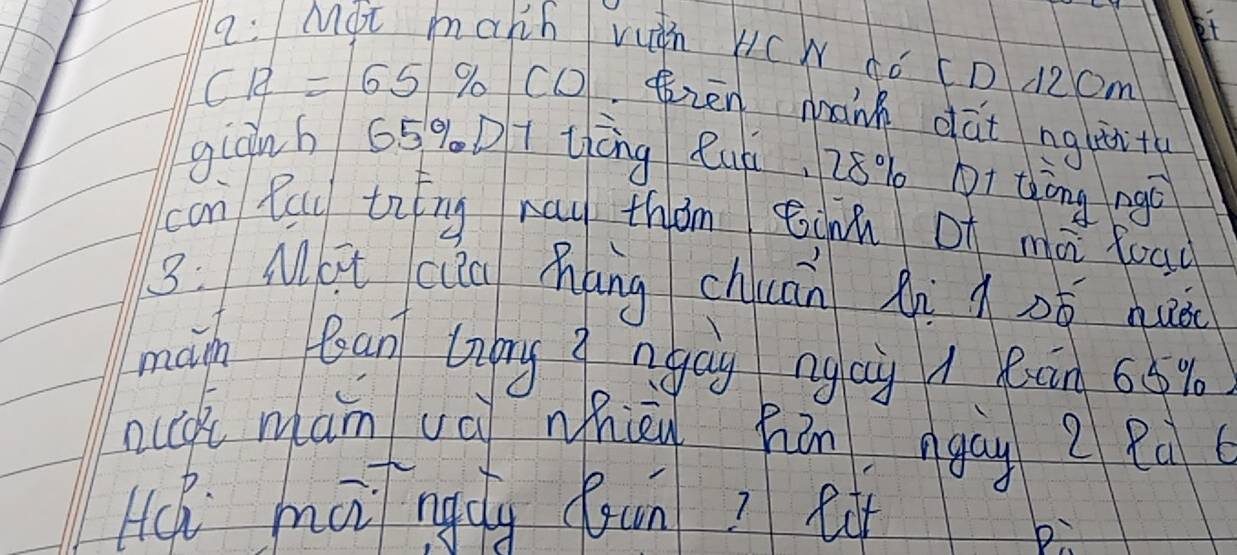 2: Một mảnh vườn HCN có CD 120m
CR = 65% CD. trên mảnh đất người ta
giành 65% DT trồng lúa, 28% DT trồng ngô
còn lại trồng rau thơm tính DT mỗi loại
3: Một cửa hàng chuẩn bị 1 số nước
mắm bán trong 2 ngày ngày 1 bán 65%
nước mắm và nhiều hơn ngày 2 là 6
Hỏi mỗi ngày bán ? lít